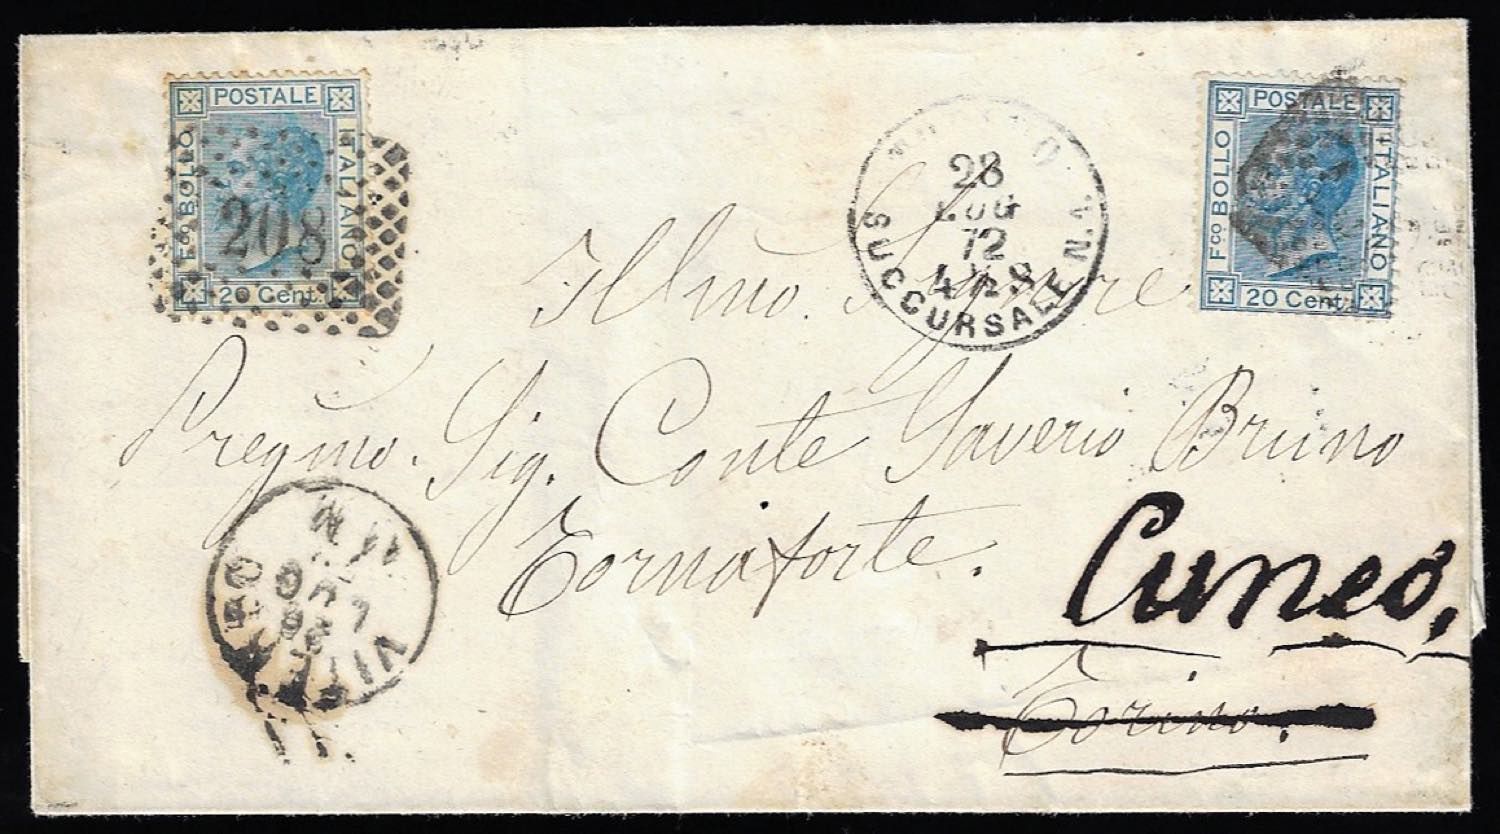 POSTALE
Fco BOLLO
ITALIANO
20 Cent.
208
28
LUG
72
4 S
SUCCURSALE N.1
POSTALE
Fco BOLLO
ITALIANO
20 Cent.
Illmo Signore
Pregmo. Sig. Conte Saverio Bruno
Tornaforte.
Cuneo,
Torino.
VITERBO
26
LUG
M